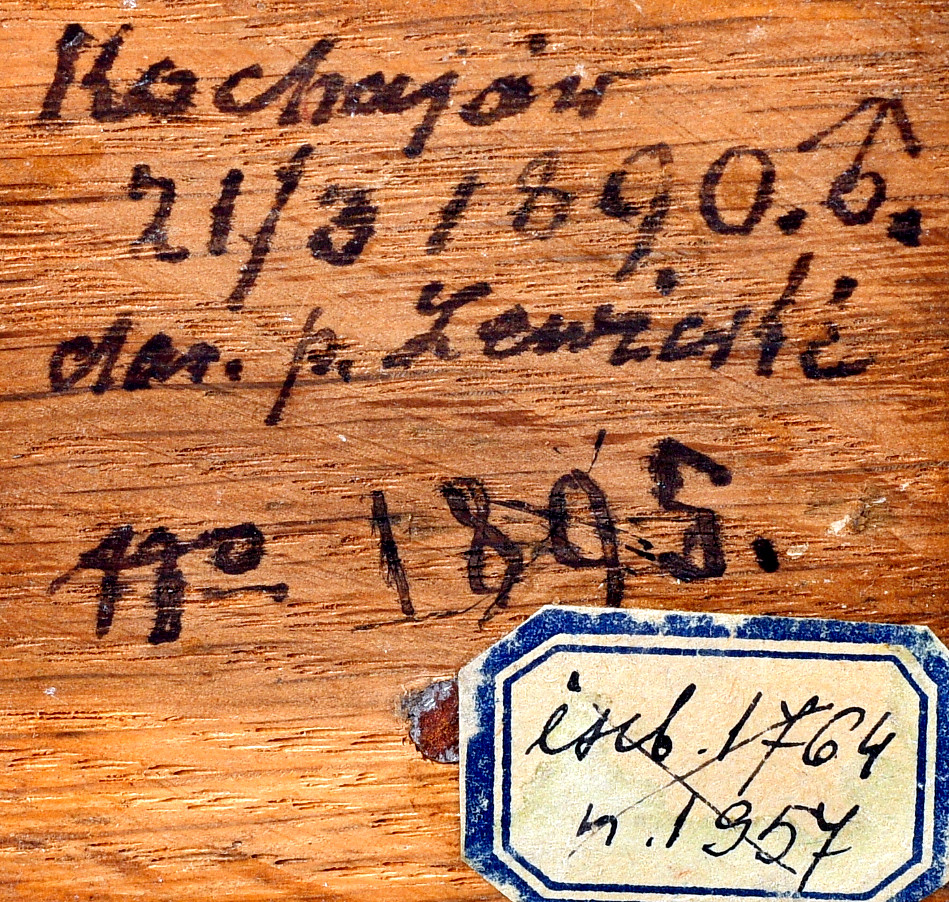 Kochajów
21/3 1890. ♂.
dar. p. Zewicki
No 1895.
inb. 1764
n. 1957